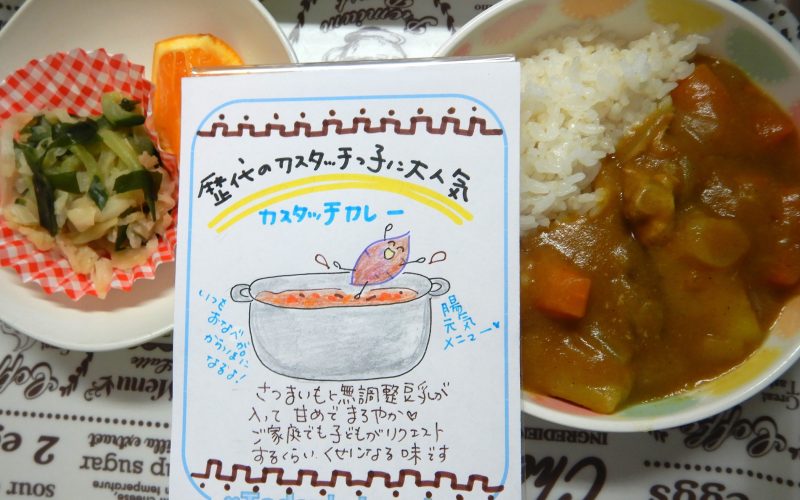 歴代のカスタッチっ子に大人気
カスタッチカレー
いつも
おなべが
からっぽに
なるよ!
腸
元気
メニュー♥
さつまいもと無調整豆乳が
入って 甘めで まろやか♡
ご家庭でも子どもがリクエスト
するくらい、くせになる 味です
Menu
Coffee
Latte
vanilla extract
2 e
up sugar
sour
temperature
Great
INGREDIEN
eggs